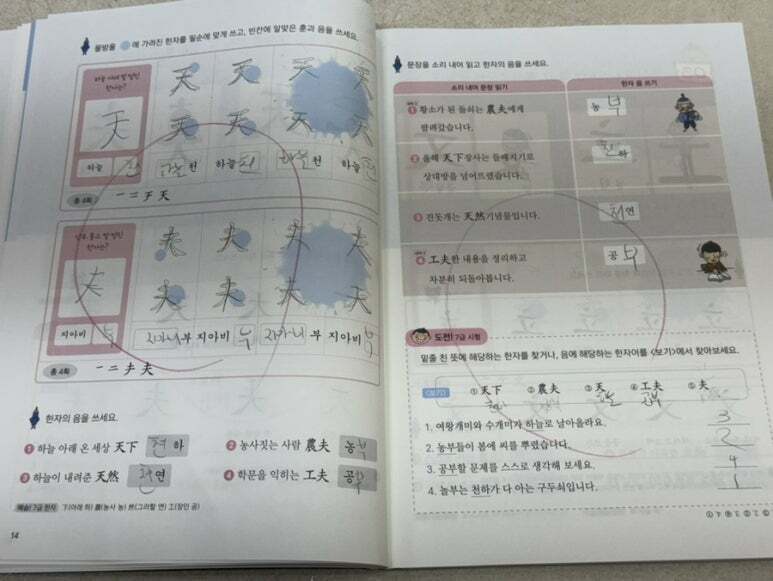 물방울 에 가려진 한자를 필순에 맞게 쓰고, 빈칸에 알맞은 훈과 음을 쓰세요.
한자는?
天
天 天 天 天
天 天 天 天
하늘 천 하늘 천 하늘 천
총 4획 一 二 チ 天
한자는?
夫
夫 夫 夫 夫
夫 夫 夫 夫
지아비 부 지아비 부 지아비
총 4획 一 二 夫 夫
한자의 음을 쓰세요.
1 하늘 아래 온 세상 天下 하
2 농사짓는 사람 農夫 농부
3 하늘이 내려준 天然 연
4 학문을 익히는 工夫 공부
예습! 7급 한자 下(아래 하) 農(농사 농) 然(그러할 연) 工(장인 공)
14
문장을 소리 내어 읽고 한자의 음을 쓰세요.
소리 내어 문장 읽기 한자 음 쓰기
1 황소가 된 돌쇠는 農夫에게 농
팔려갔습니다.
2 올해 天下장사는 들배지기로 하
상대방을 넘어뜨렸습니다.
3 진돗개는 天然기념물입니다. 천연
4 工夫한 내용을 정리하고 공부
차분히 되돌아봅니다.
도전! 7급 시험
밑줄 친 뜻에 해당하는 한자를 찾거나, 음에 해당하는 한자어를 <보기>에서 찾아보세요.
<보기> ①天下 ②農夫 ③天 ④工夫 ⑤夫
하늘 공부
1. 여왕개미와 수개미가 하늘로 날아올라요. 3
2. 농부들이 봄에 씨를 뿌렸습니다. 2
3. 공부할 문제를 스스로 생각해 보세요. 4
4. 놀부는 천하가 다 아는 구두쇠입니다. 1